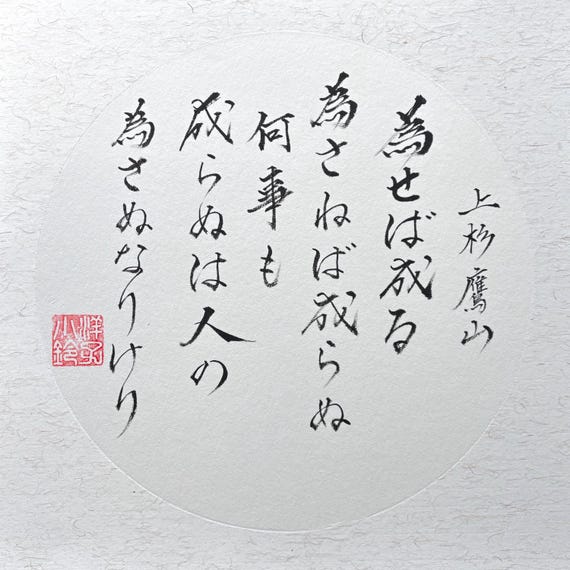 上杉鷹山
為せば成る
為さねば成らぬ
何事も
成らぬは人の
為さぬなりけり